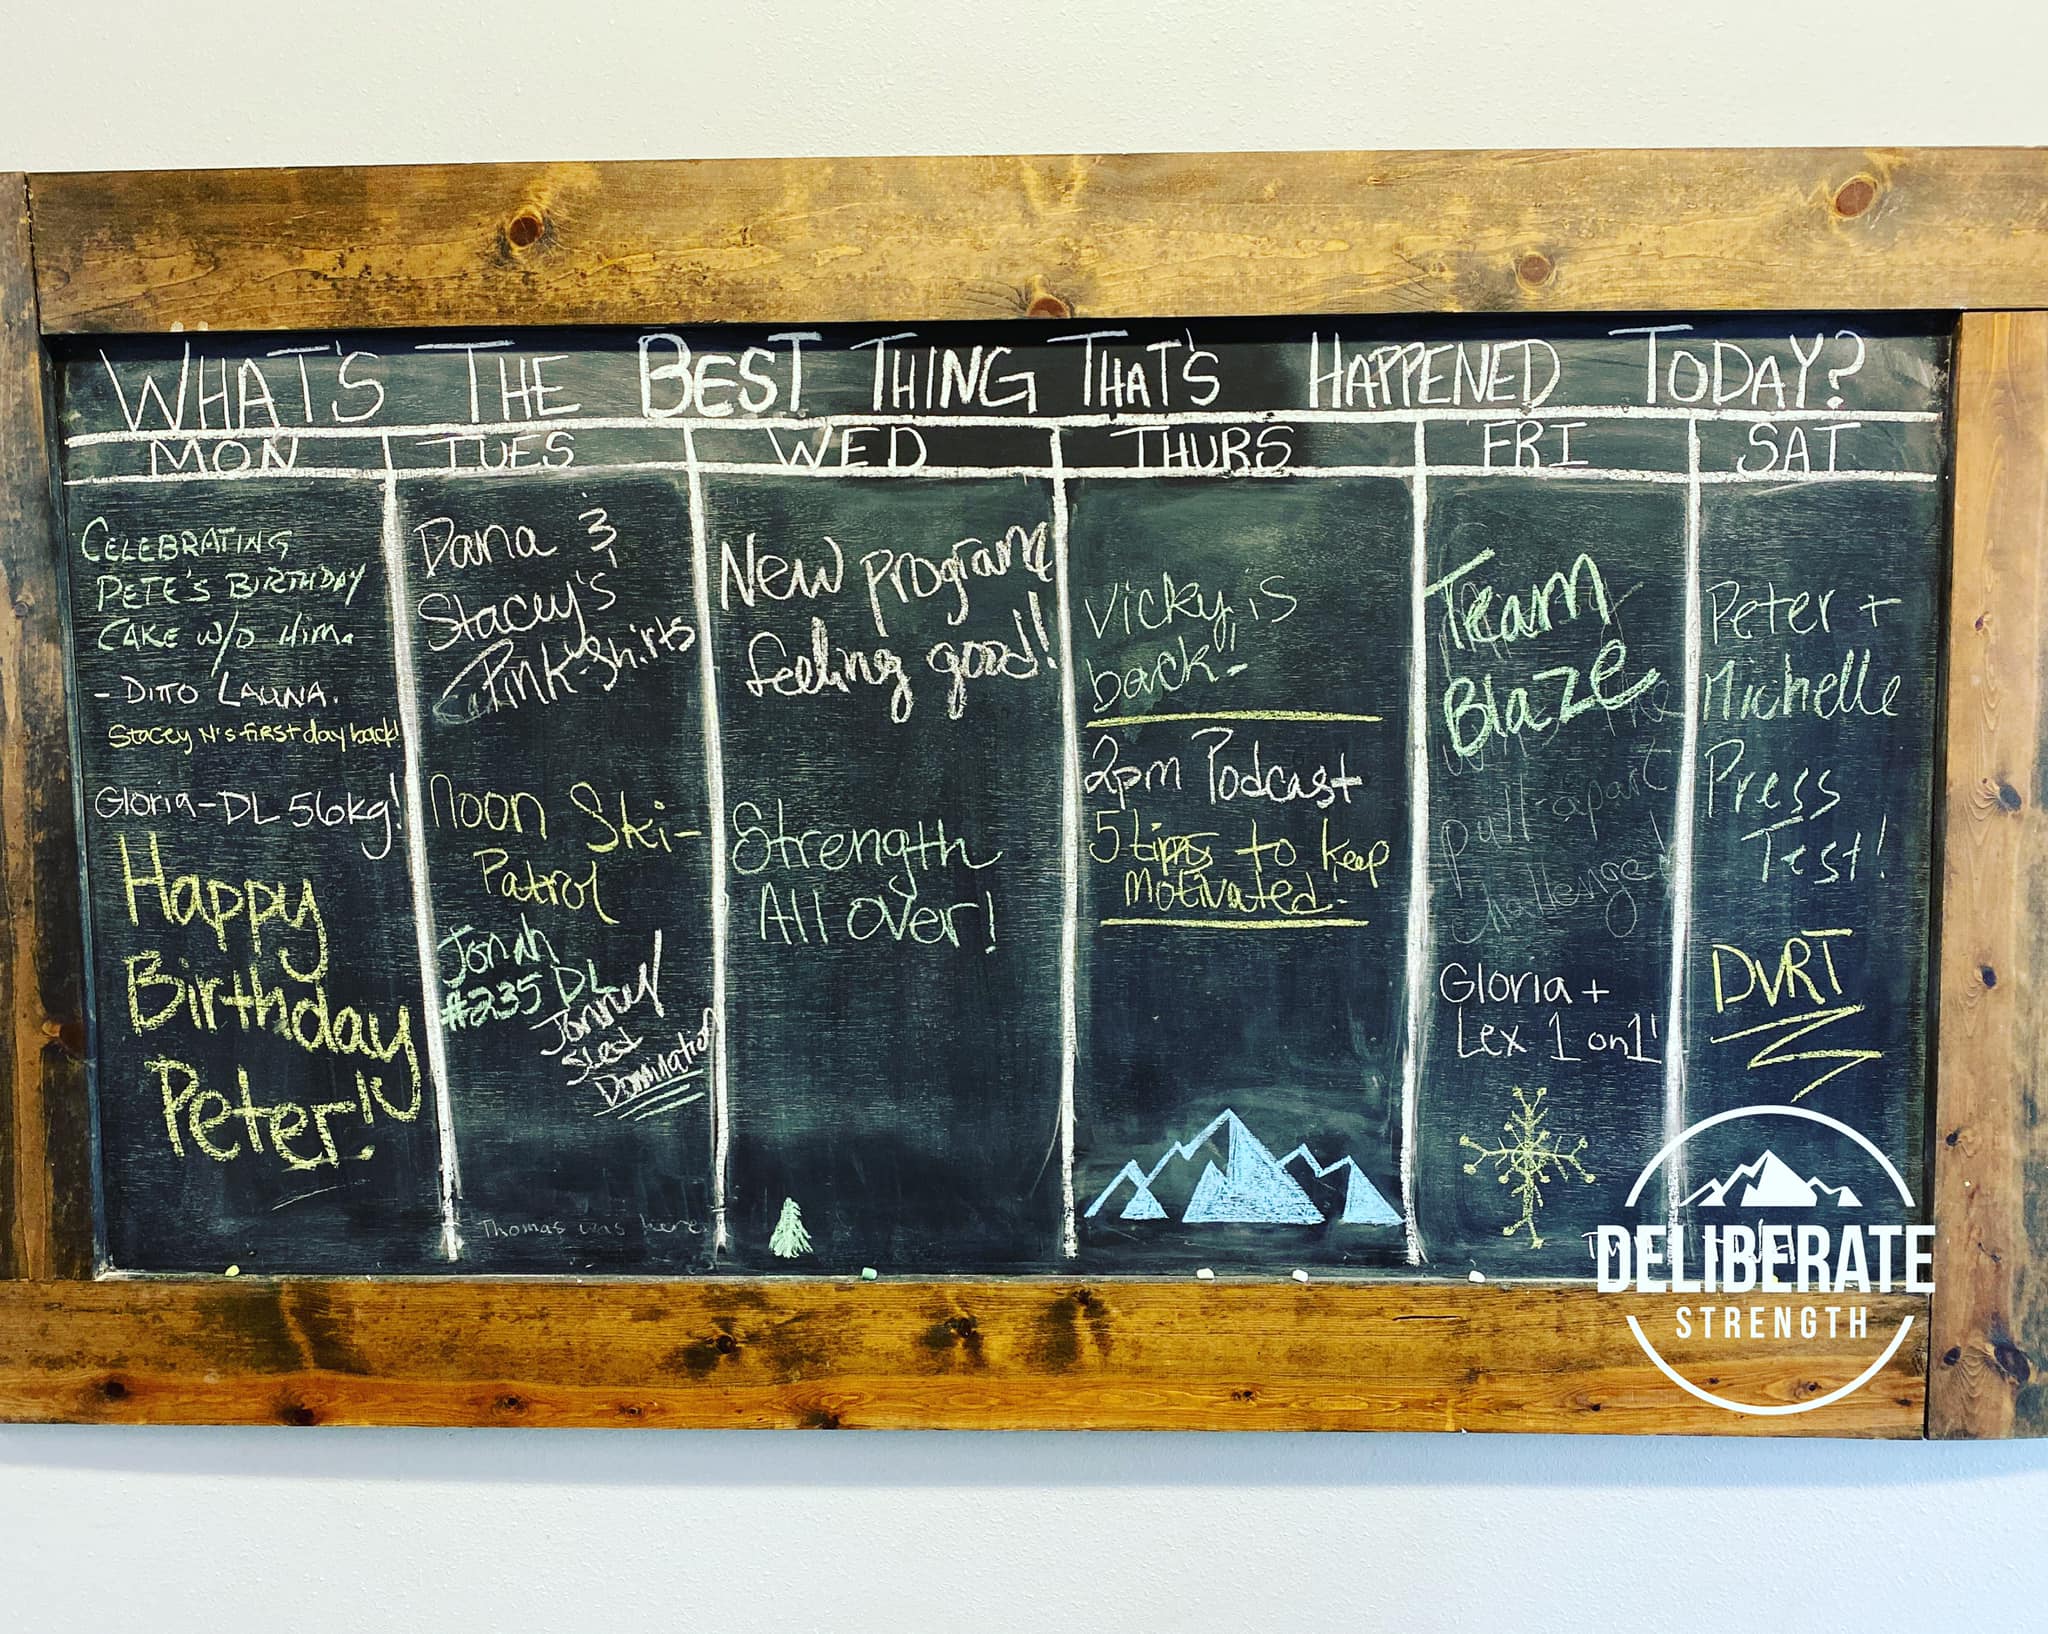 WHAT'S THE BEST THING THAT'S HAPPENED TODAY?
MON TUES WED THURS FRI SAT
CELEBRATING
PETE'S BIRTHDAY
CAKE W/O HIM.
- DITTO LAUNA.
Stacey N's first day back!
Gloria-DL 56kg!
Happy
Birthday
Peter!
Dana &
Stacey's
Pink-shirts
Noon Ski-
Patrol
Jonah
#235 DL
Sled
Domination
Thomas was here
New program
feeling good!
Strength
All over!
Vicky is
back!
2pm Podcast
5 tips to keep
motivated.
Team
Blaze
pull-apart
challenge!
Gloria +
Lex 1 on 1!
Peter +
Michelle
Press
Test!
DVRT
DELIBERATE
STRENGTH